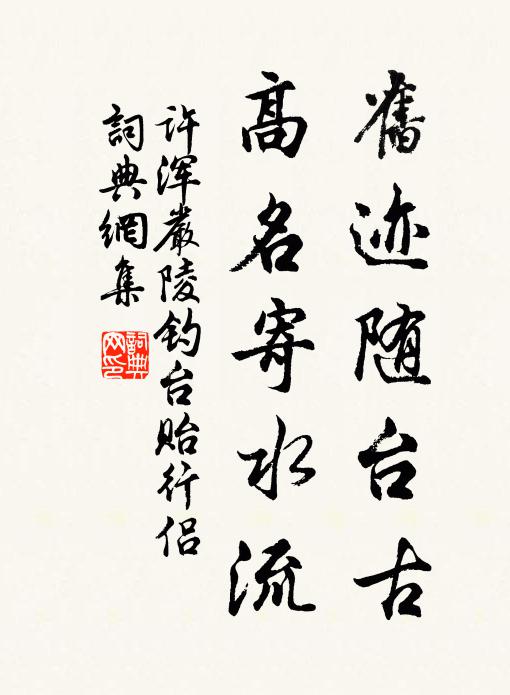 舊迹随台古
高名寄水流
许浑嚴陵钓台贻行侣
詞典網集
詞典网印